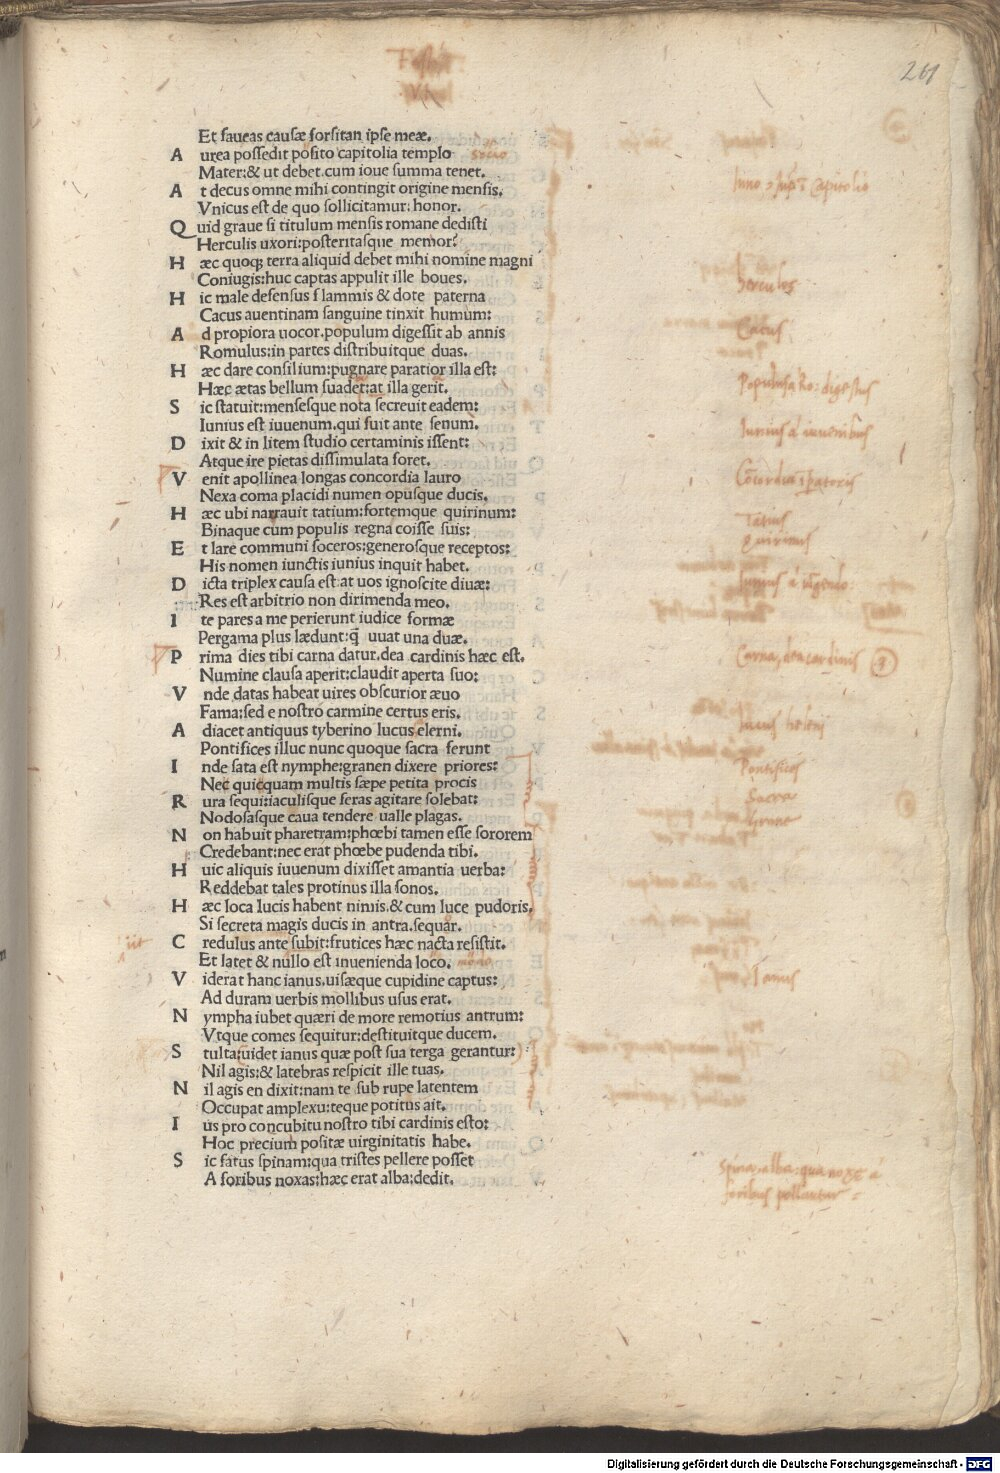 261
Et faueas causæ forsitan ipse meæ.
A urea possedit posito capitolia templo
Mater:& ut debet.cum ioue summa tenet.
A t decus omne mihi contingit origine mensis.
Vnicus est de quo sollicitamur: honor.
Q uid graue si titulum mensis romane dedisti
Herculis uxori:posteritasque memor?
H æc quoqꝫ terra aliquid debet mihi nomine magni
Coniugis:huc captas appulit ille boues.
H ic male defensus flammis & dote paterna
Cacus auentinam sanguine tinxit humum:
A d propiora uocor.populum digessit ab annis
Romulus:in partes distribuitque duas.
H æc dare consilium:pugnare paratior illa est:
Hæc ætas bellum suadet:at illa gerit.
S ic statuit:mensesque nota secreuit eadem:
Iunius est iuuenum.qui fuit ante senum.
D ixit & in litem studio certaminis issent:
Atque ire pietas dissimulata foret.
V enit apollinea longas concordia lauro
Nexa coma placidi numen opusque ducis.
H æc ubi narrauit tatium:fortemque quirinum:
Binaque cum populis regna coisse suis:
E t lare communi soceros:generosque receptos:
His nomen iunctis iunius inquit habet.
D icta triplex causa est:at uos ignoscite diuæ:
Res est arbitrio non dirimenda meo.
I te pares a me perierunt iudice formæ
Pergama plus lædunt:q̃ uuat una duæ.
P rima dies tibi carna datur.dea cardinis hæc est.
Numine clausa aperit:claudit aperta suo:
V nde datas habeat uires obscurior æuo
Fama:sed e nostro carmine certus eris.
A diacet antiquus tyberino lucus elerni.
Pontifices illuc nunc quoque sacra ferunt
I nde sata est nymphe:granen dixere priores:
Nec quicquam multis sæpe petita procis
R ura sequi:iaculisque feras agitare solebat:
Nodosasque caua tendere ualle plagas.
N on habuit pharetram:phœbi tamen esse sororem
Credebant:nec erat phœbe pudenda tibi.
H uic aliquis iuuenum dixisset amantia uerba:
Reddebat tales protinus illa sonos.
H æc loca lucis habent nimis.& cum luce pudoris.
Si secreta magis ducis in antra.sequar.
C redulus ante subit:frutices hæc nacta resistit.
Et latet & nullo est inuenienda loco.
V iderat hanc ianus.uisæque cupidine captus:
Ad duram uerbis mollibus usus erat.
N ympha iubet quæri de more remotius antrum:
Vtque comes sequitur:destituitque ducem.
S tulta:uidet ianus quæ post sua terga gerantur:
Nil agis:& latebras respicit ille tuas.
N il agis en dixit:nam te sub rupe latentem
Occupat amplexu:teque potitus ait.
I us pro concubitu nostro tibi cardinis esto:
Hoc precium positæ uirginitatis habe.
S ic fatus spinam:qua tristes pellere posset
A foribus noxas:hæc erat alba:dedit.
herculos
Cacus
Tatius
Quirinus
Carna, dea cardinis
Pontifices
Sacra
Ianus
Digitalisierung gefördert durch die Deutsche Forschungsgemeinschaft - DFG